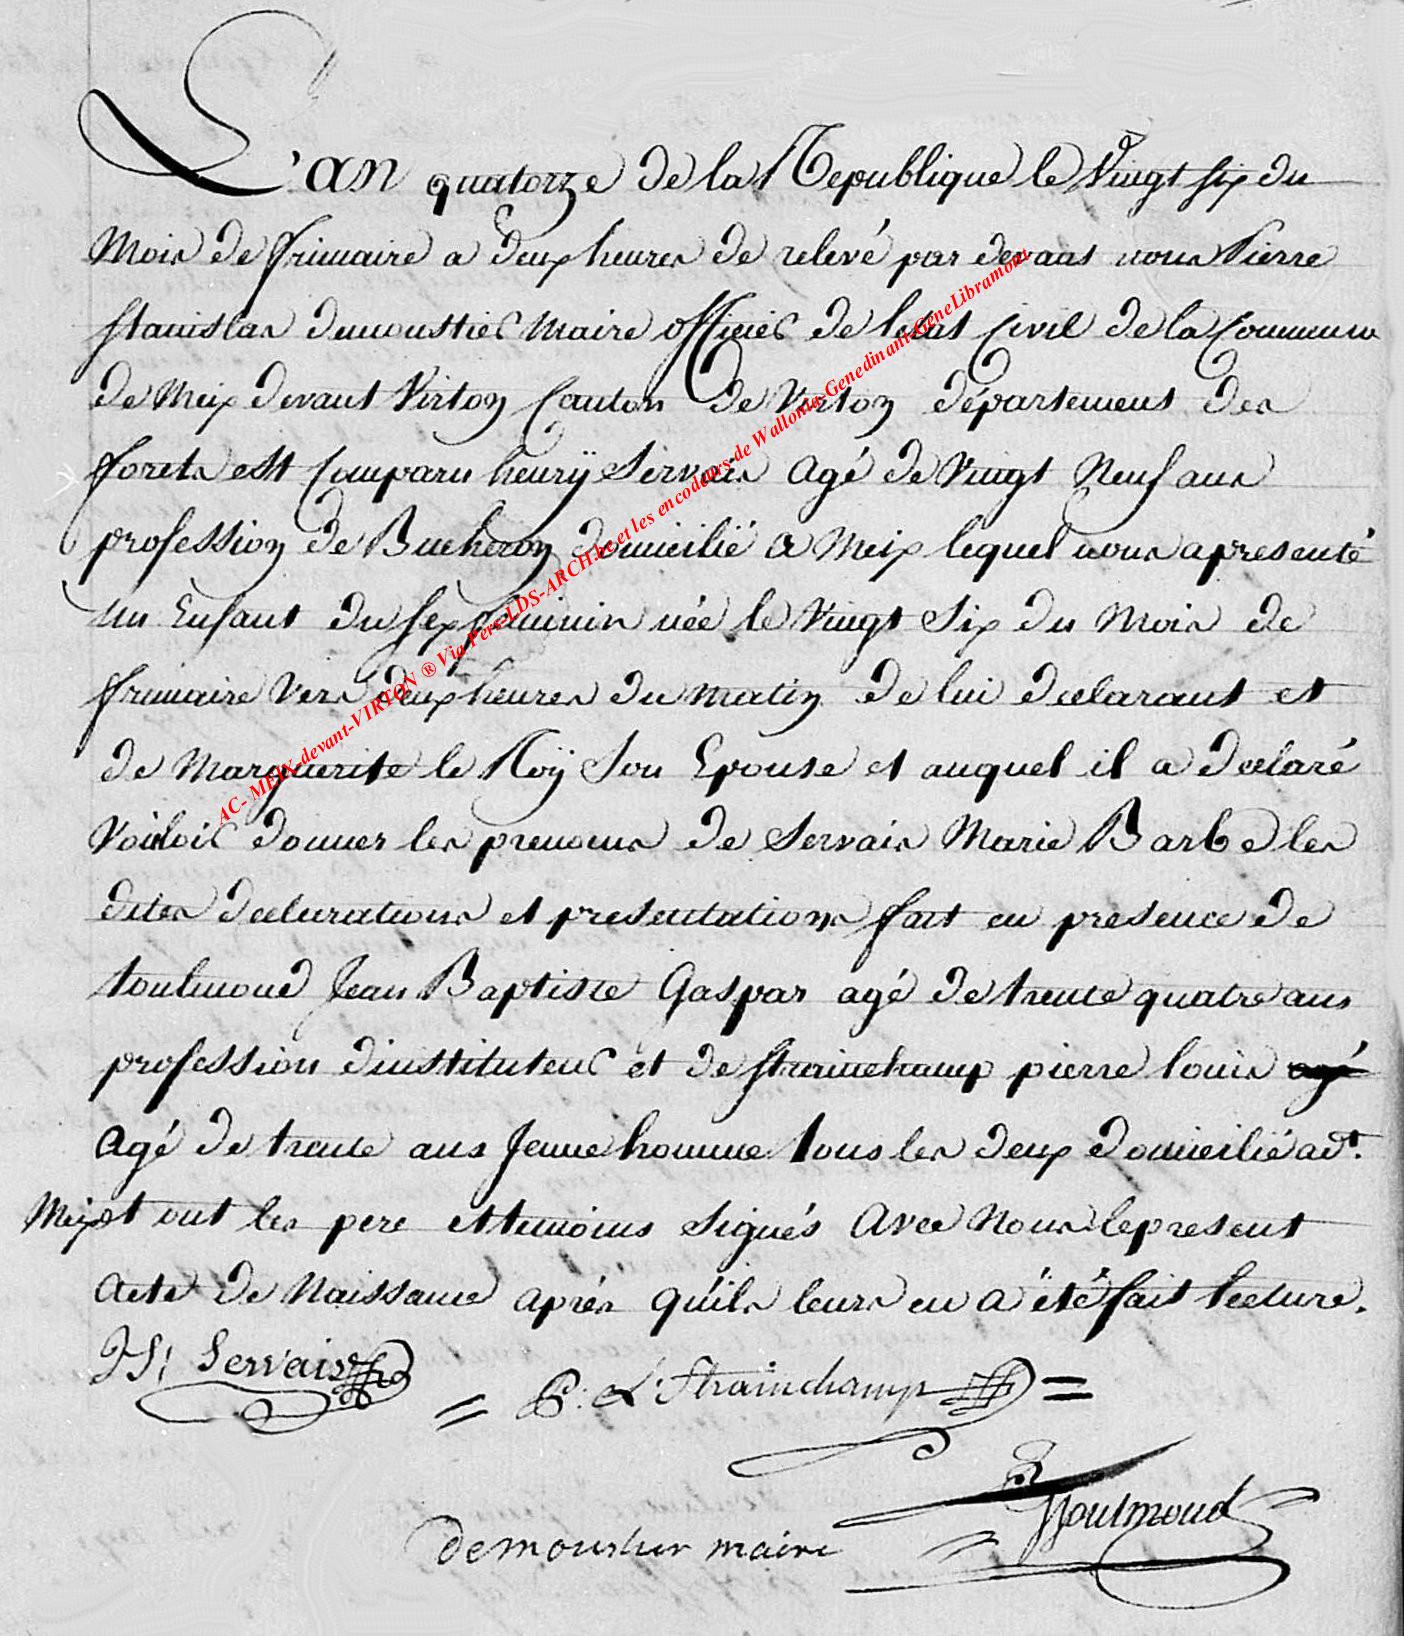 L'an quatorze de la Republique le Vingt six du
Mois de frimaire a deux heures de relevé par devant nous Pierre
Stanislas demoustier Maire officier de letat Civil de la Commune
de Meix devant Virton Canton de Virton departement des
forets est Comparu henrÿ Servais agé de Vingt Neuf ans
profession de Bucheron domicilié a Meix lequel nous apresenté
un Enfant du sex feminin née le Vingt Six du Mois de
frimaire Vers deux heures du matin de lui declarant et
de Marguerite le Roÿ Son Epouse et auquel il a declaré
Vouloir donner les prenoms de Servais Marie Barbe les
dites declarations et presentations fait en presence de
toulmond Jean Baptiste Gaspar agé de trente quatre ans
profession dinstituteur et de strainchamp pierre louis agé
agé de trente ans Jeune homme tous les deux domicilié adt.
Meix et ont les pere et temoins signés avec Nous le present
acte de Naissance aprés quils leurs en a été fait lecture.
H: Servais
= P: L: Strainchamp =
Toulmond
demoustier maire
AC- MEIX-devant-VIRTON ® Via Pers-LDS-ARCH.be et les encodeurs de Wallonia-Genedinant-GeneLibramont